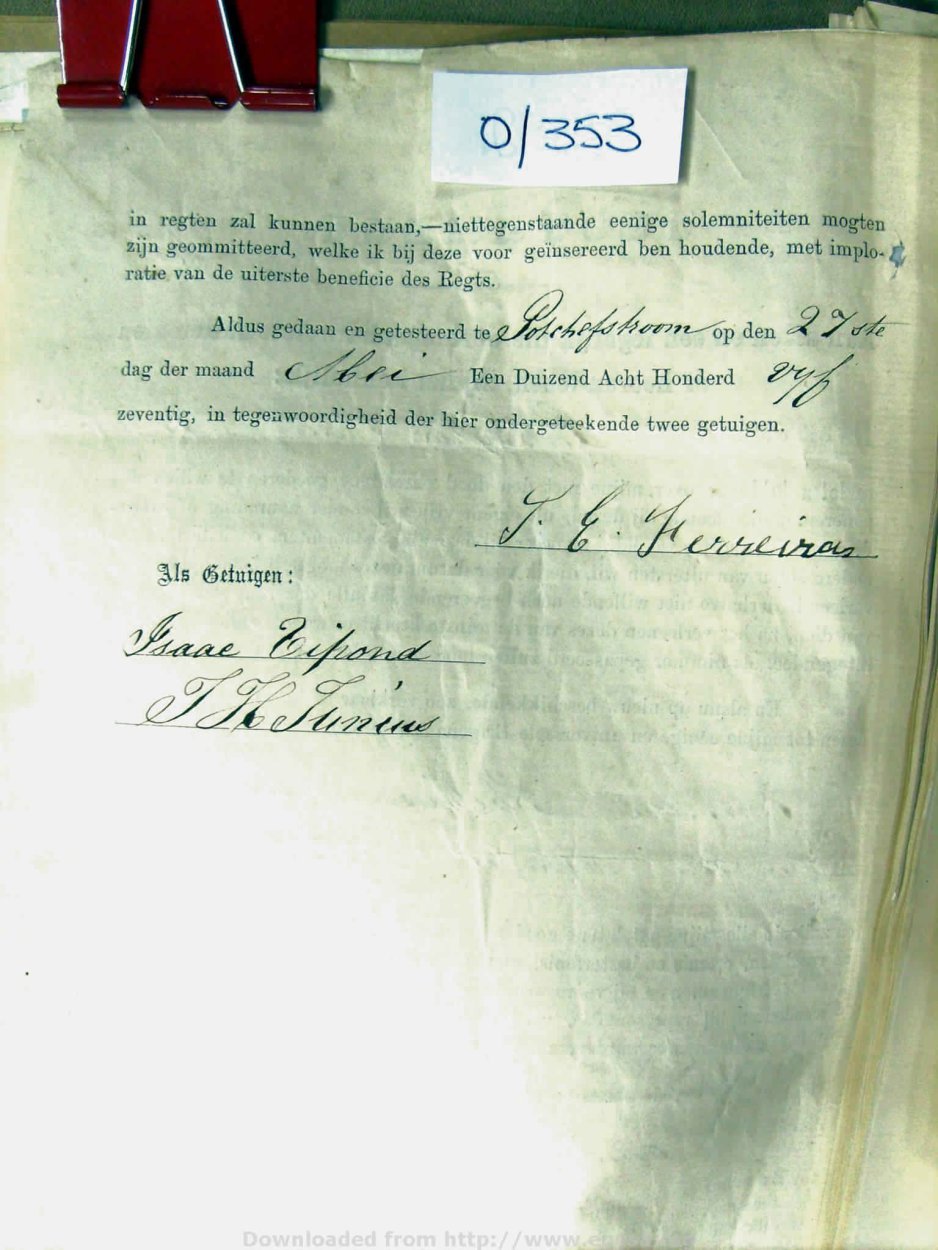 0/353
in regten zal kunnen bestaan,—niettegenstaande eenige solemniteiten mogten
zijn geommitteerd, welke ik bij deze voor geïnsereerd ben houdende, met implo-
ratie van de uiterste beneficie des Regts.
Aldus gedaan en getesteerd te Potchefstroom op den 27ste
dag der maand Mei Een Duizend Acht Honderd vyf
zeventig, in tegenwoordigheid der hier ondergeteekende twee getuigen.
Als Getuigen:
Isaac
Downloaded from http://www.e